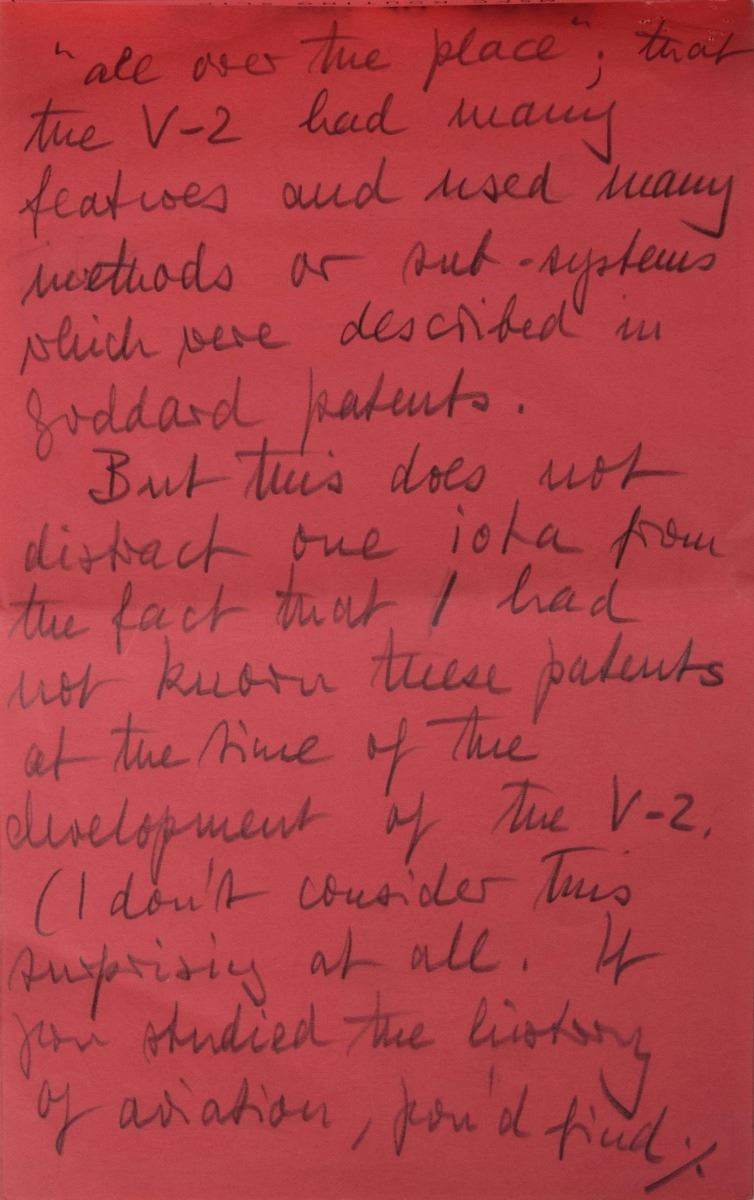 "all over the place"; that
the V-2 had many
features and used many
methods or sub-systems
which were described in
Goddard patents.
But this does not
distract one iota from
the fact that I had
not known these patents
at the time of the
development of the V-2.
(I don't consider this
surprising at all. If
you studied the history
of aviation, you'd find ./.